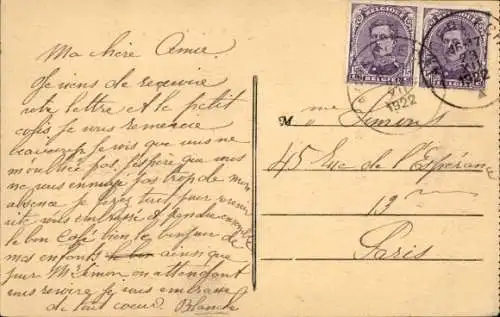 Ma chère Amie.
Je viens de recevoir
votre lettre et le petit
colis je vous remercie
beaucoup je vois que vous ne
m'oubliée pas j'espère que vous
ne vous ennuyé pas trop de mon
absence je serez pour
vous embrassé
le bon café bien le bonjour de
mes enfants ainsi que
pour Mr Simon on attendant
vous revoire je vous embrasse
de tout coeur. Blanche
BELGIQUE BELGIQUE
15 15
BELGIË BELGIË
1922 1922
M me Simons
45 Rue de l'Espérance
13 me
Paris